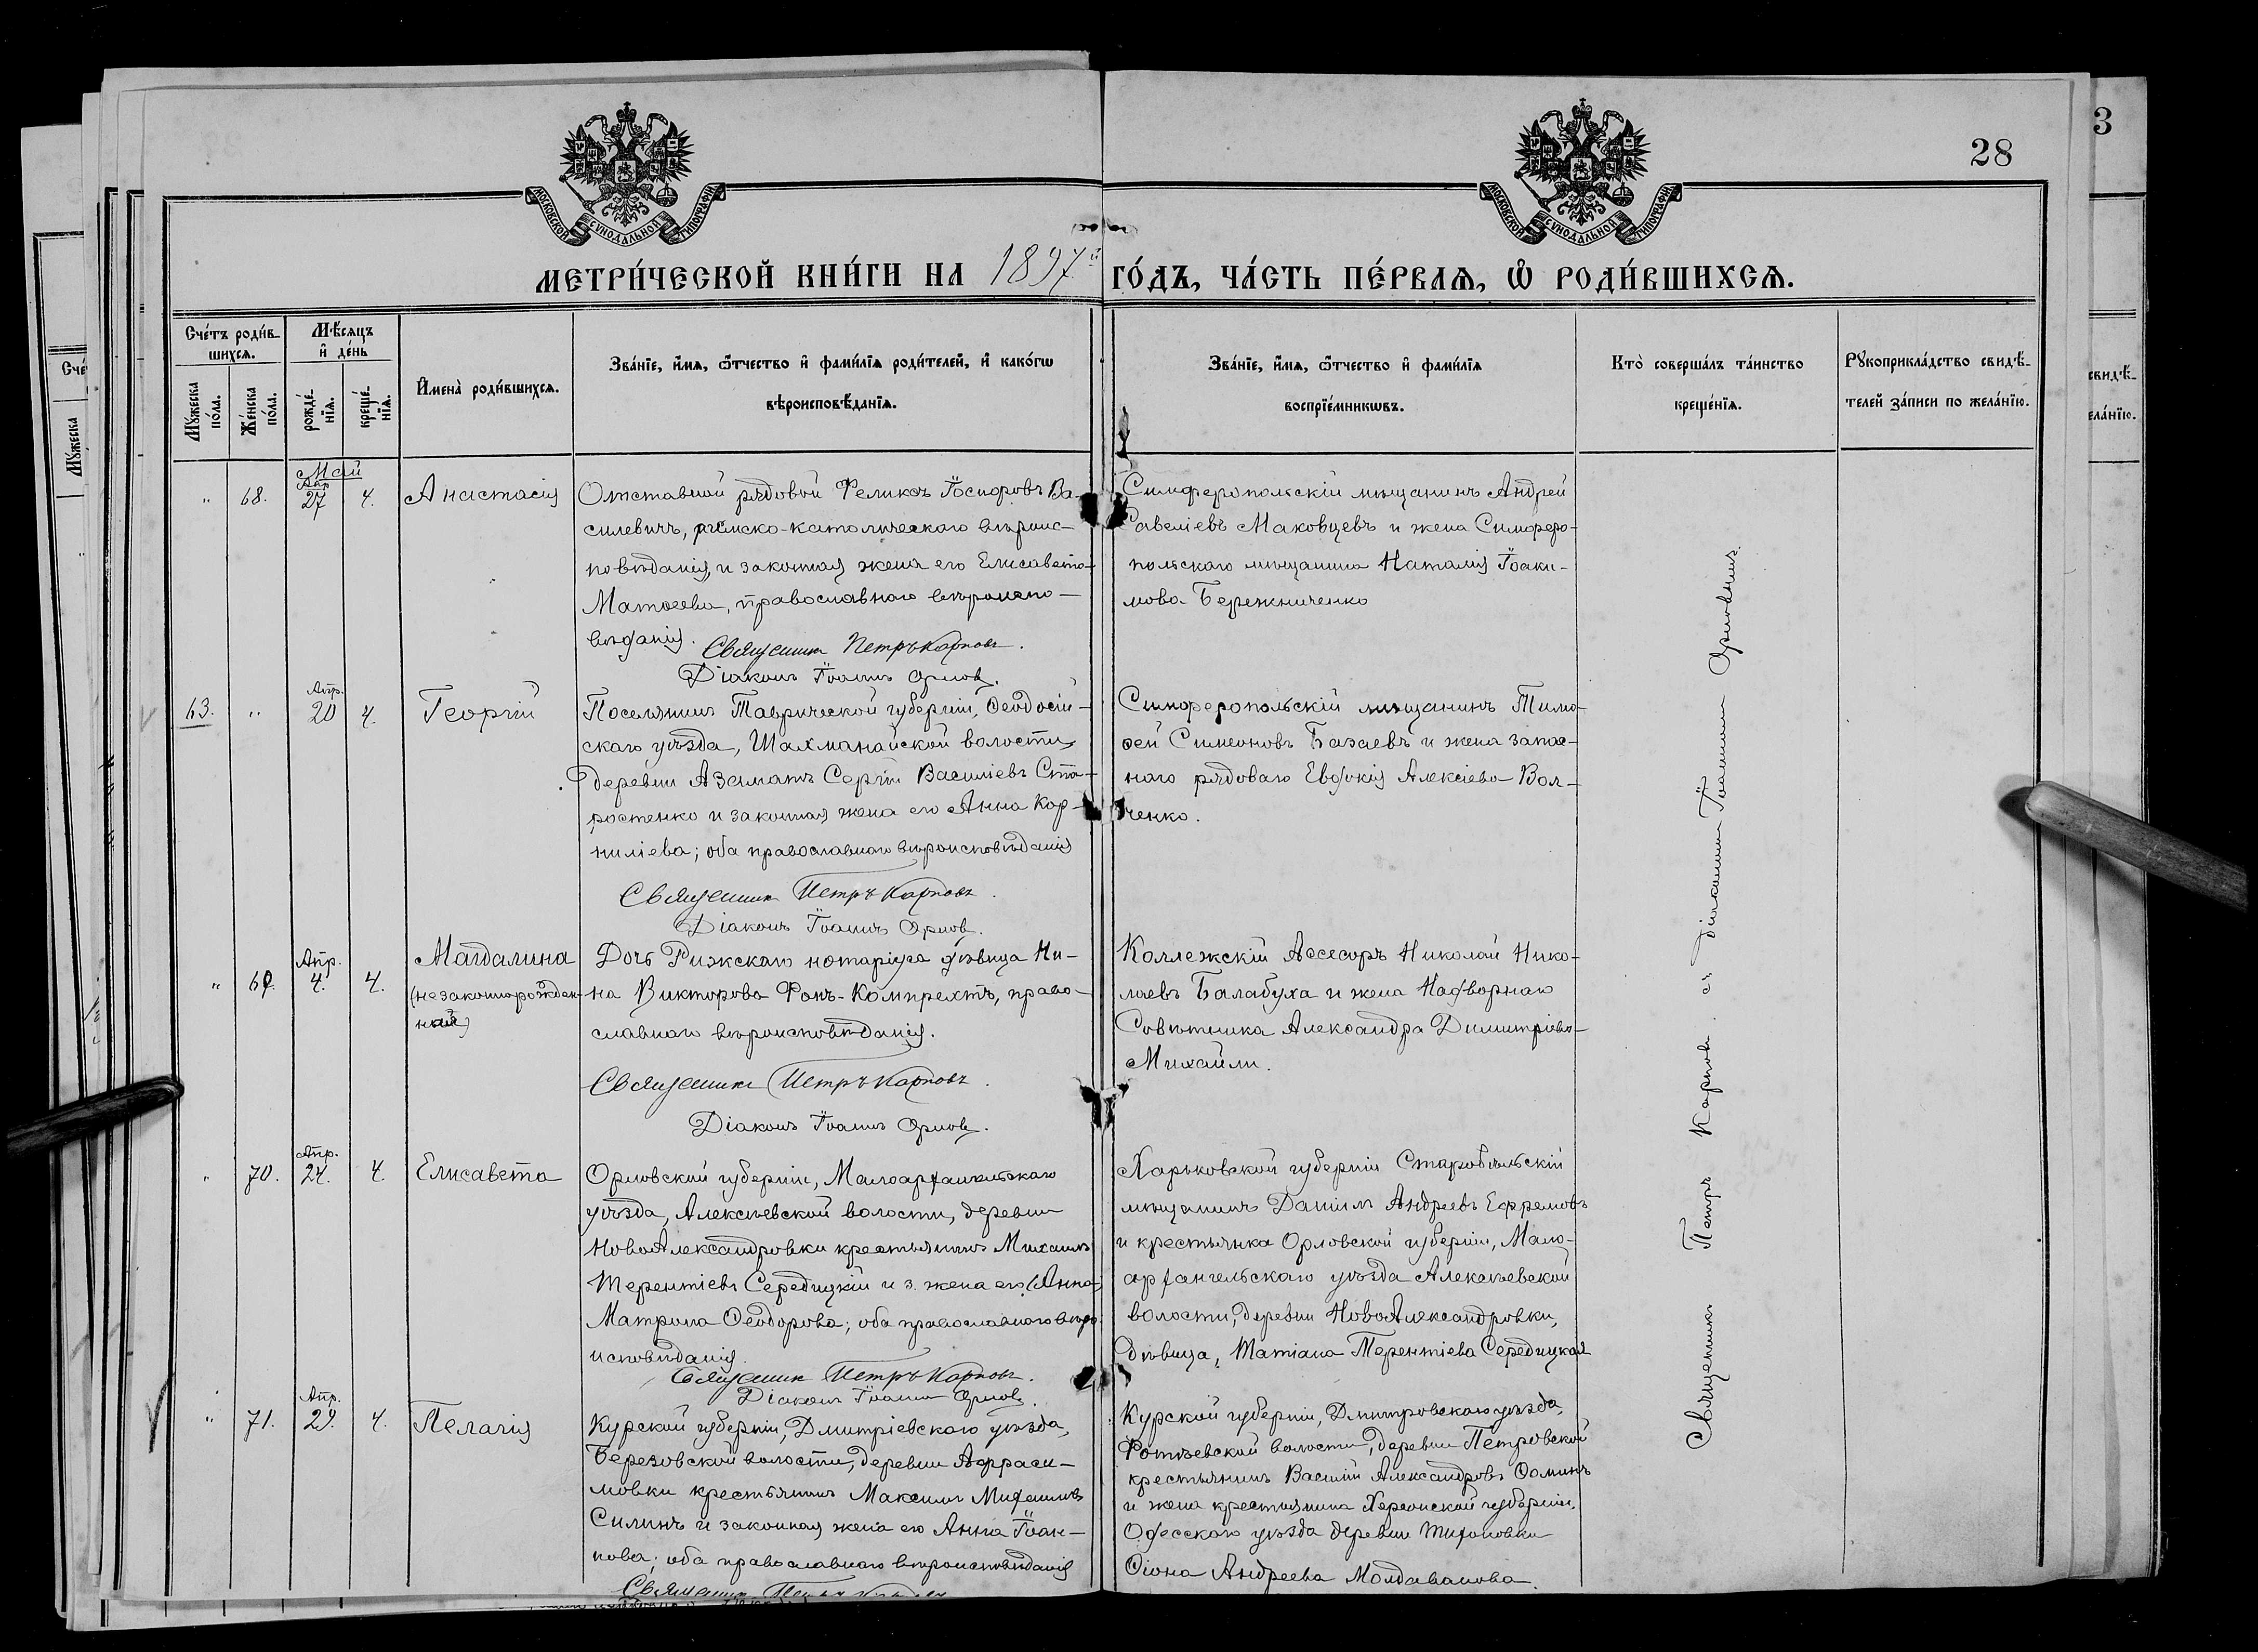 28
3
МОСКОВСКОЙ СУНОДАЛЬНОЙ ТИПОГРАФІИ
МОСКОВСКОЙ СУНОДАЛЬНОЙ ТИПОГРАФІИ
МЕТРИ́ЧЕСКОЙ КНИ́ГИ НА 1897й ГО́ДЪ, ЧА́СТЬ ПЕ́РВАѦ, Ѡ҆ РОДИ́ВШИХСѦ.
Сче́тъ роди́в-
шихсѧ.
Мꙋ́жеска по́ла.
Же́нска по́ла.
Мѣ́сѧцъ
и҆ де́нь
рожде́-
нїѧ.
креще́-
нїѧ.
И҆мена̀ роди́вшихсѧ.
Зва́нїе, и҆́мѧ, ѻ҆́тчество и҆ фами́лїѧ роди́телей, и҆ како́гѡ
вѣроисповѣ́данїѧ.
Зва́нїе, и҆́мѧ, ѻ҆́тчество и҆ фами́лїѧ
воспрїе́мникѡвъ.
Кто̀ соверша́лъ та́инство
креще́нїѧ.
Рꙋкоприкла́дство свидѣ́-
телей за́писи по жела́нїю.
Май
„ 68. Апр. 27 4. Анастасія
Отставной рядовой Феликсъ Іосифовъ Ва-
силевичъ, римско-католическаго вѣроис-
повѣданія, и законная жена его Елисавета
Матѳеева, православнаго вѣроиспо-
вѣданія.
Священникъ Петръ Карповъ.
Діаконъ Іоаннъ Орлов.
Симферопольскій мѣщанинъ Андрей
Савеліевъ Маковцевъ и жена Симферо-
польскаго мѣщанина Наталія Іоаки-
мова Бережниченко
63. „ Апр. 20 4. Георгій
Поселянинъ Таврической губерніи, Ѳеодосій-
скаго уѣзда, Шахманайской волости,
деревни Азаматъ Сергій Василіевъ Ста-
ростенко и законная жена его Анна Кор-
ниліева; оба православнаго вѣроисповѣданія
Священникъ Петръ Карповъ.
Діаконъ Іоаннъ Орлов.
Симферопольскій мѣщанинъ Тимо-
ѳей Симеоновъ Базаевъ и жена запас-
ного рядоваго Евдокія Алексіева Вол-
ченко.
„ 69. Апр. 4. 4. Магдалина
(незаконнорожден-
ная)
Дочь Рижскаго нотаріуса дѣвица Ни-
на Викторова Фонъ-Компрехтъ, право-
славнаго вѣроисповѣданія.
Священникъ Петръ Карповъ.
Діаконъ Іоаннъ Орлов.
Коллежскій Ассесоръ Николай Нико-
лаевъ Балабуха и жена Надворнаго
Совѣтника Александра Димитріева
Михайли.
„ 70. Апр. 24. 4. Елисавета
Орловской губерніи, Малоархангельскаго
уѣзда, Алексѣевской волости, деревни
НовоАлександровки крестьянинъ Михаилъ
Терентіевъ Середицкій и з. жена его (Анна)
Матрона Ѳеодорова; оба православнаго вѣро-
исповѣданія.
Священникъ Петръ Карповъ.
Діаконъ Іоаннъ Орлов.
Харьковской губерніи Старобѣльскій
мѣщанинъ Даніилъ Андреевъ Ефремовъ
и крестьянка Орловской губерніи, Мало-
архангельскаго уѣзда Алексѣевской
волости, деревни НовоАлександровки,
дѣвица, Татіана Терентіева Середицкая
„ 71. Апр. 29. 4. Пелагія
Курской губерніи, Дмитріевскаго уѣзда,
Березовской волости, деревни Афраси-
мовки крестьянинъ Максимъ Михаиловъ
Силинъ и законная жена его Анна Іоан-
нова; оба православнаго вѣроисповѣданія
Священникъ Петръ Карповъ
Курской губерніи, Дмитровскаго уѣзда,
волости, деревни Петровской
крестьянинъ Василій Александровъ Ѳоминъ
и жена крестьянина Херсонской губерніи,
Одесскаго уѣзда деревни Тихоновки
Андреева Молдаванова.
Священникъ Петръ Карповъ съ діакономъ Іоанномъ Орловымъ.